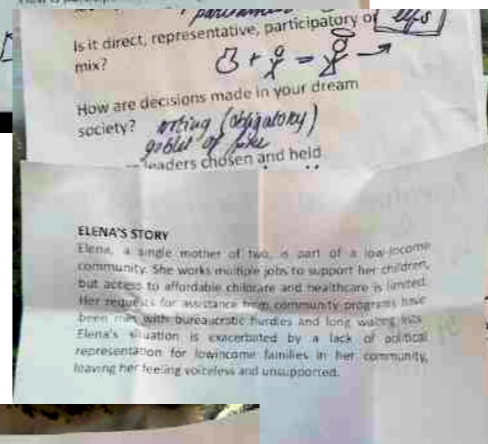 Is it direct, representative, participatory or elfs
mix?
How are decisions made in your dream
society? voting (obligatory)
goblet of fire
leaders chosen and held
ELENA'S STORY
Elena, a single mother of two, is part of a low-income
community. She works multiple jobs to support her children,
but access to affordable childcare and healthcare is limited.
Her requests for assistance from community programs have
been met with bureaucratic hurdles and long waiting lists.
Elena's situation is exacerbated by a lack of political
representation for lowincome families in her community,
leaving her feeling voiceless and unsupported.